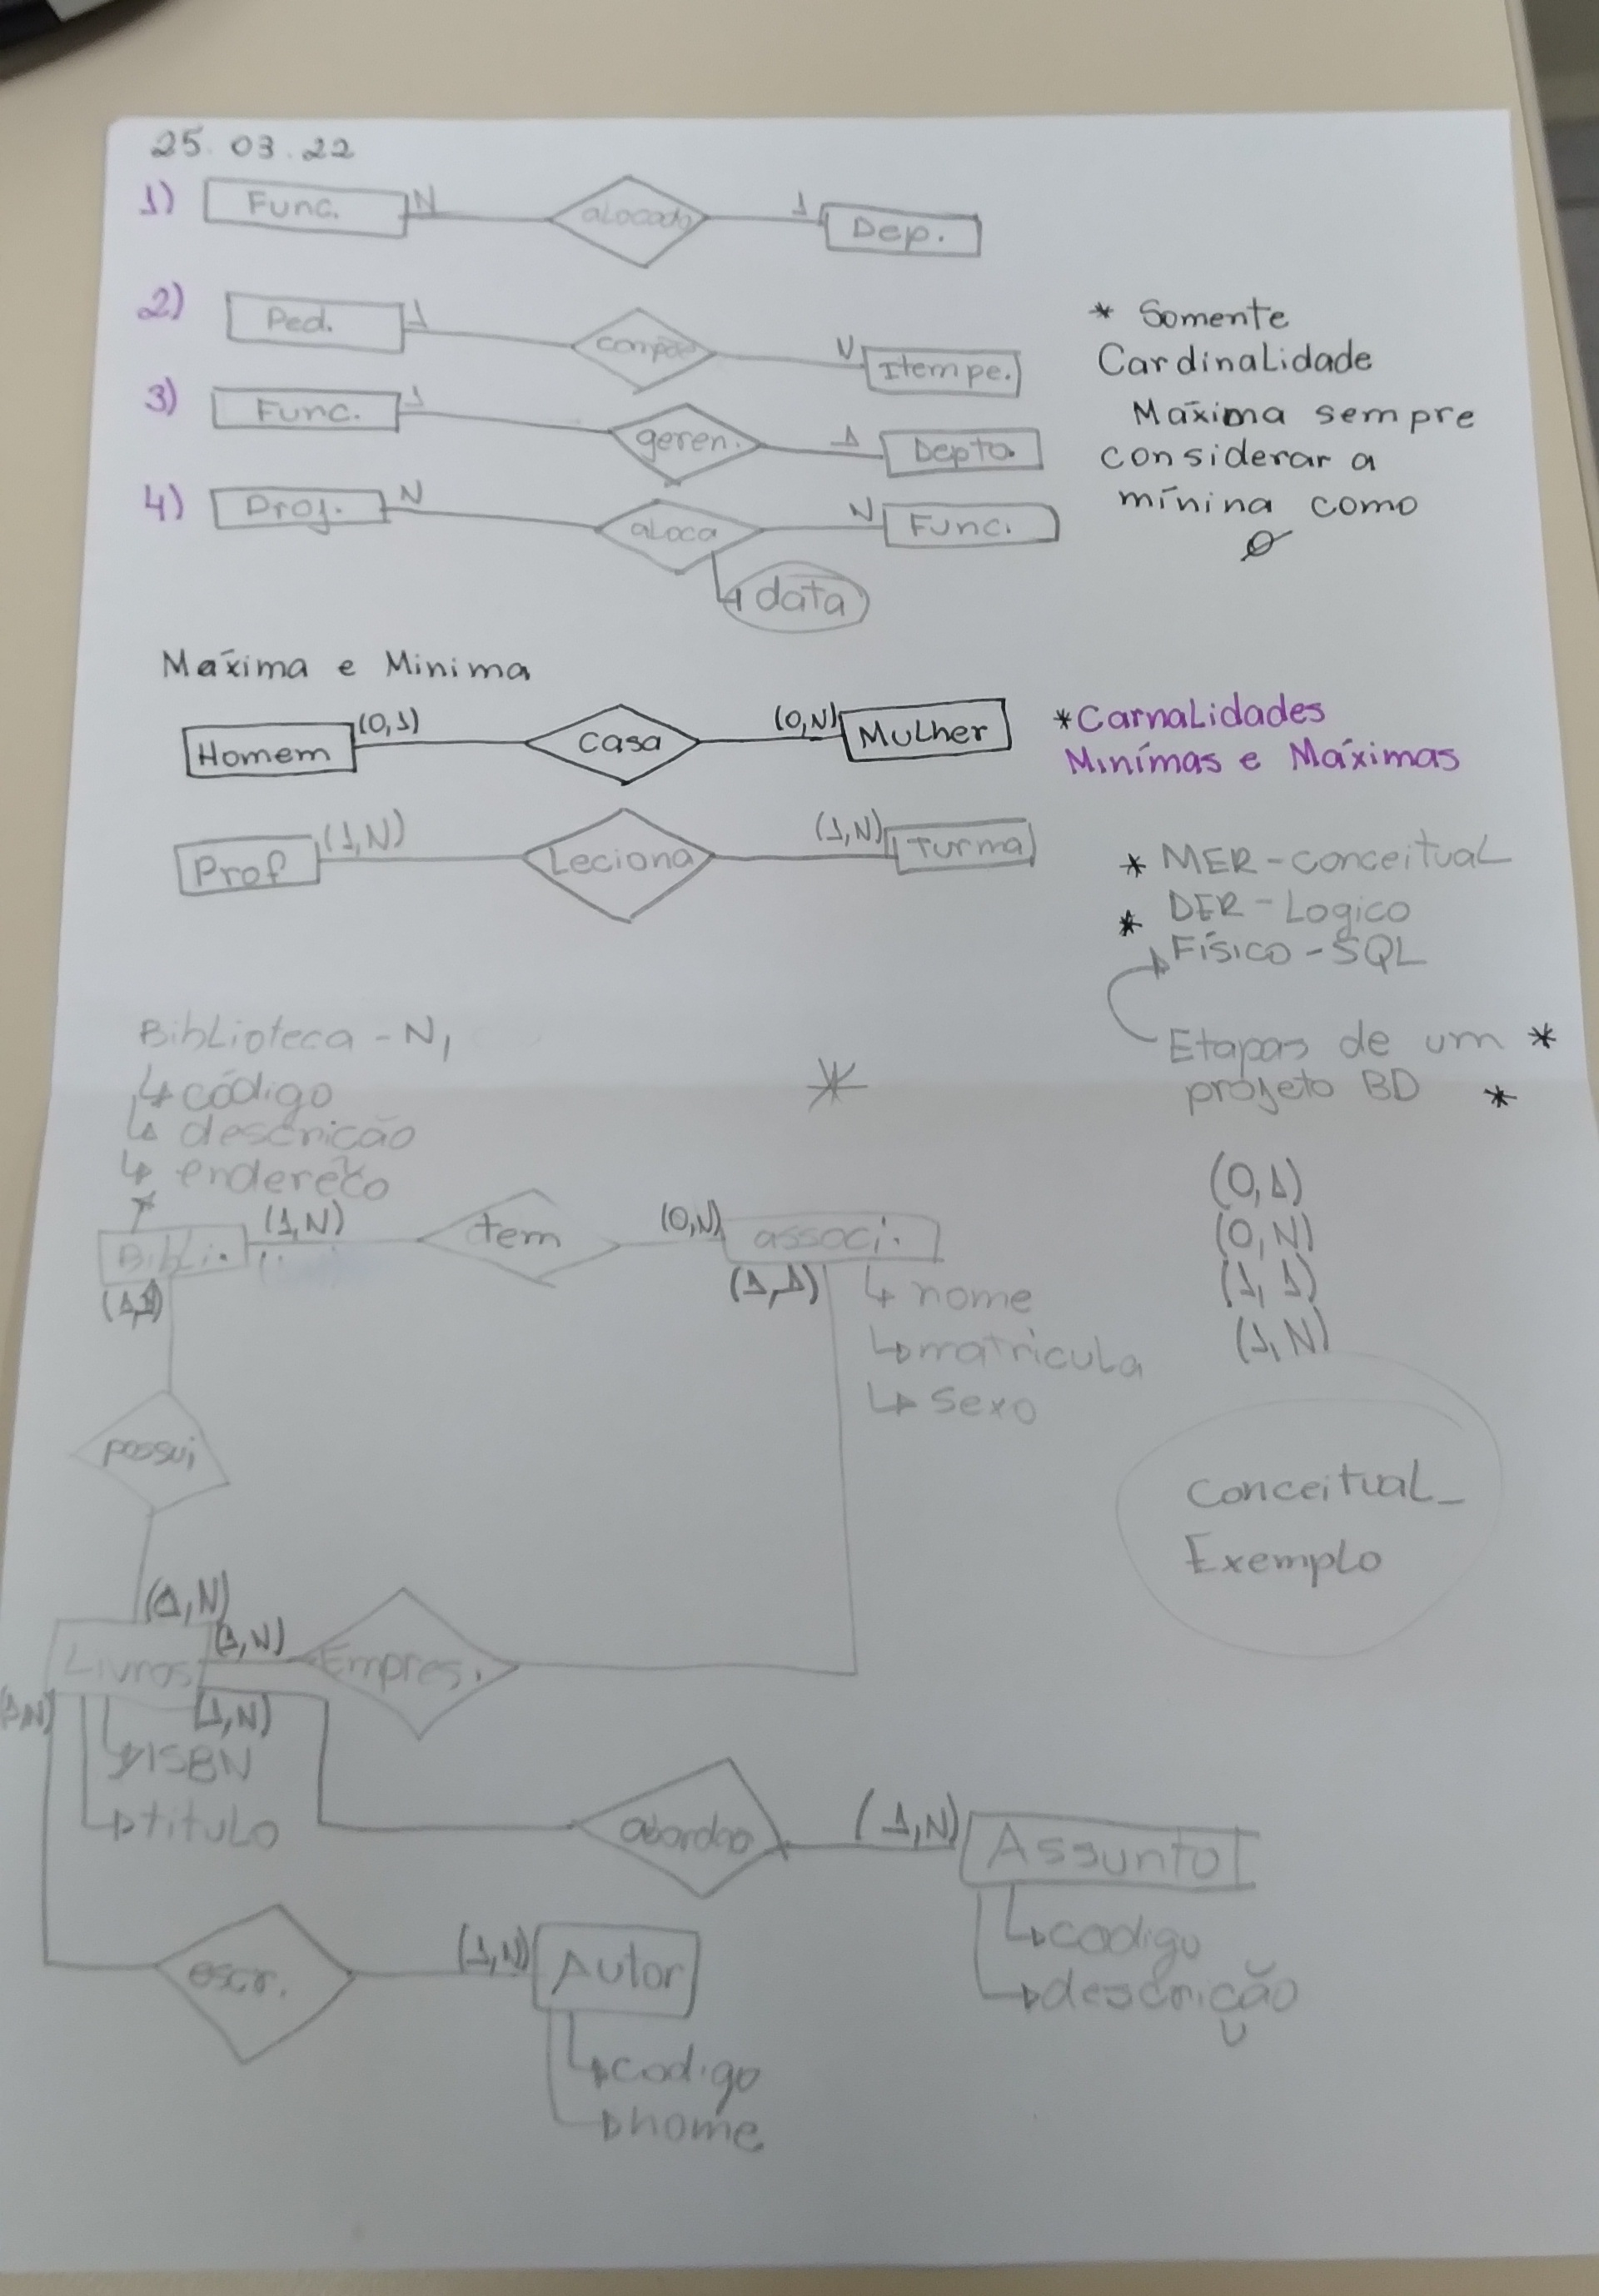 25.03.22
1) Func. N alocado 1 Dep.
2) Ped. 1 N Itempe.
3) Func. 1 geren. 1 Depto.
4) Proj. N aloca N Func.
data
* Somente
Cardinalidade
Máxima sempre
considerar a
mínina como
0
Máxima e Minima
Homem (0,1) casa (0,N) Mulher
*Carnalidades
Minímas e Máximas
Prof (1,N) Leciona (1,N) Turma
* MER-conceitual
* DER-Logico
Físico-SQL
Etapas de um *
projeto BD *
Biblioteca - N,
código
descrição
endereço
*
Bibli. (1,N) tem (0,N) associ.
(1,1)
(1,1)
nome
matricula
sexo
(0,1)
(0,N)
(1,1)
(1,N)
possui
Conceitual_
Exemplo
(1,N)
Livros (1,N) Empres.
(1,N) (1,N)
ISBN
titulo
(1,N) Assunto
codigo
descrição
escr. (1,N) Autor
codigo
nome